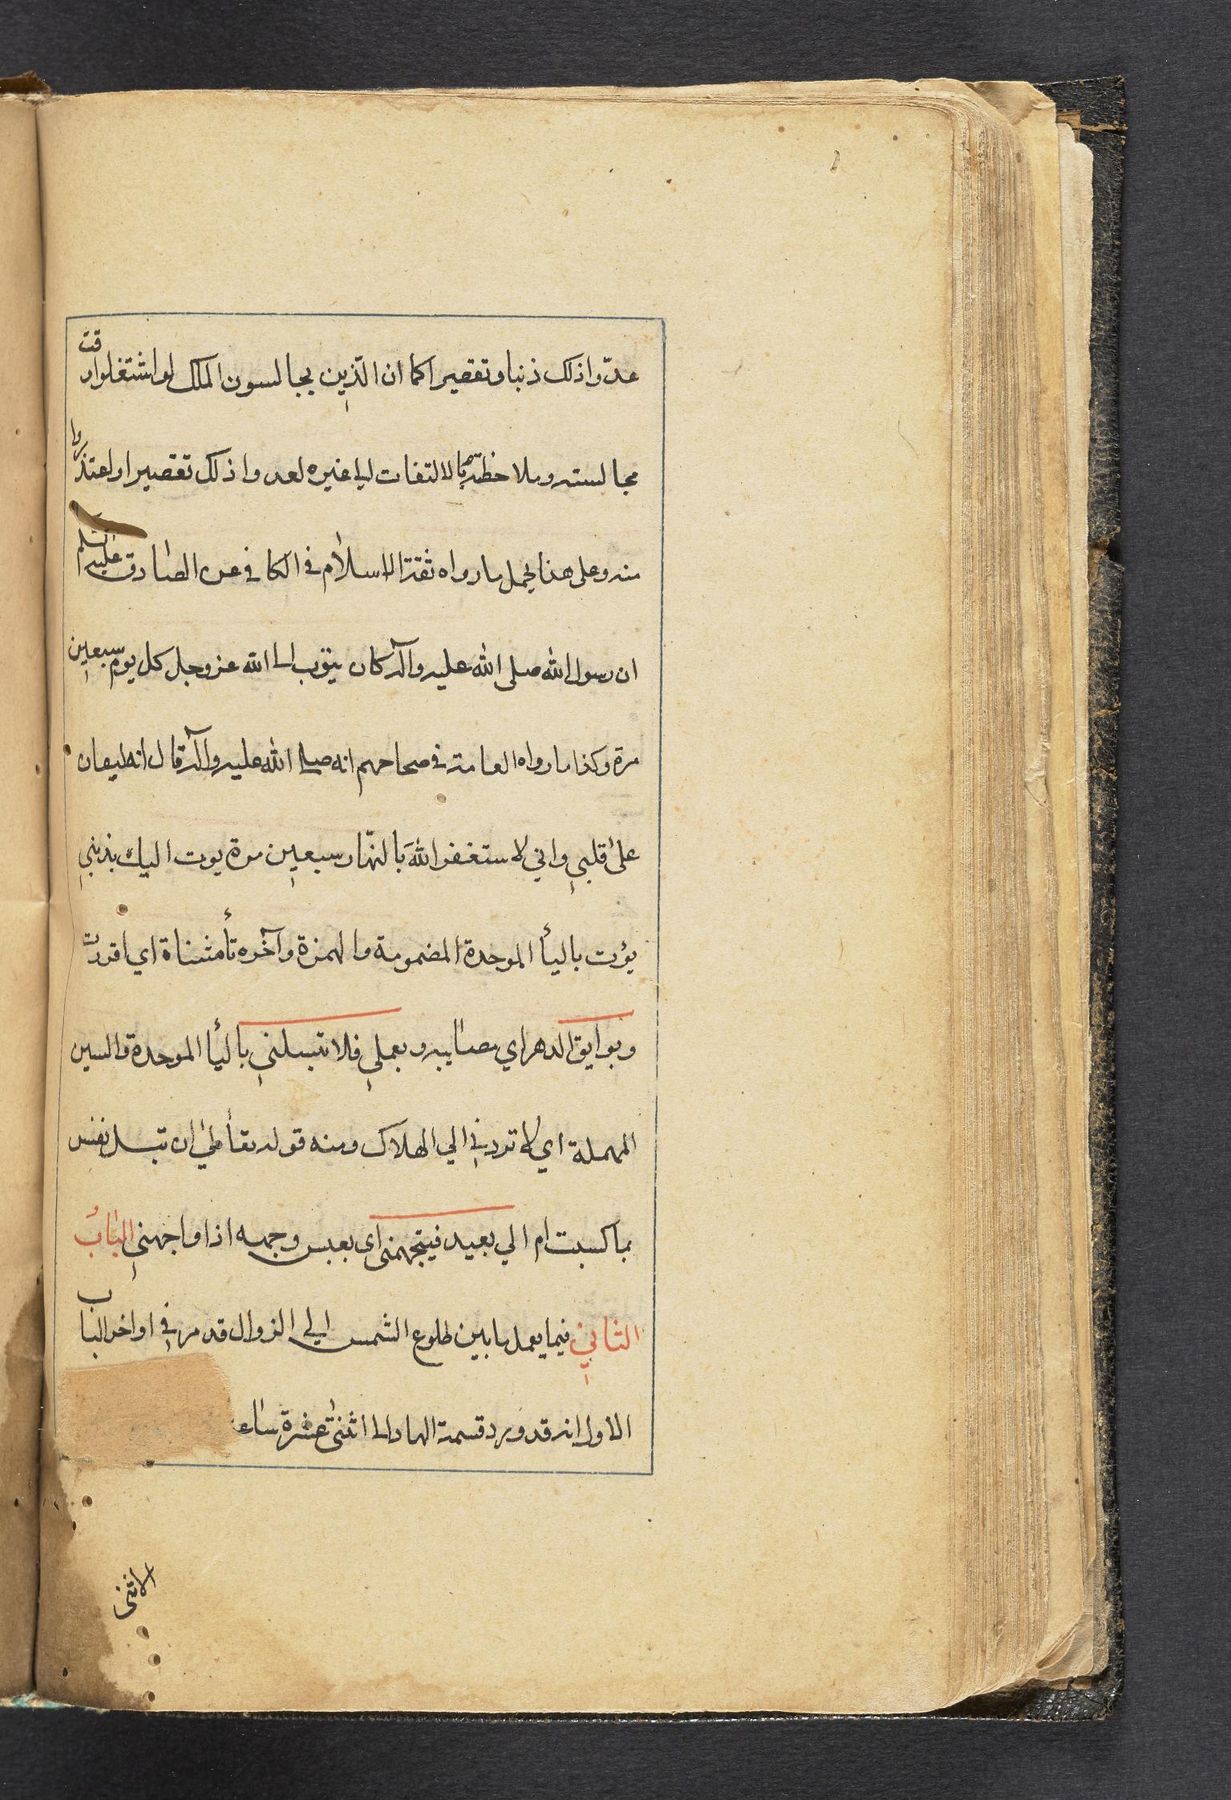 عدّوا ذلك ذنبا وتقصيرا كما ان الّذين يجالسون الملك لو اشتغلوا وقت
مجالسته وملاحظته بالالتفات الى غيره لعدوا ذلك تقصيرا واعتذروا
منه وعلى هذا يحمل ما رواه ثقة الاسلام في الكافي عن الصادق عليه السلم
ان رسول الله صلى الله عليه وآله كان يتوب الى الله عز وجل كل يوم سبعين
مرة وكذا ما رواه العامة في صحاحهم انه صلى الله عليه وآله قال انه ليغان
على قلبي واني لاستغفر الله بالنهار سبعين مرة بوت اليك بذنبي
بؤت بالبأ الموحدة المضمومة والهمزة وآخره تأ مثناة اي اقررت
وبوايق الدهر اي مصائبه وبعملي فلا تبسلني بالبأ الموحدة والسين
المهملة اي لا تردني الي الهلاك ومنه قوله تعأ ان تبسل نفس
بما كسبت ام الي بعيد فيتجهمني اي يعبس وجهه اذا واجهني الباب
الثاني فيما يعمل ما بين طلوع الشمس الي الزوال قد مر في اواخر الباب
الاول انه قد ورد قسمة النهار الى اثنتي عشرة ساعه
الاثنى